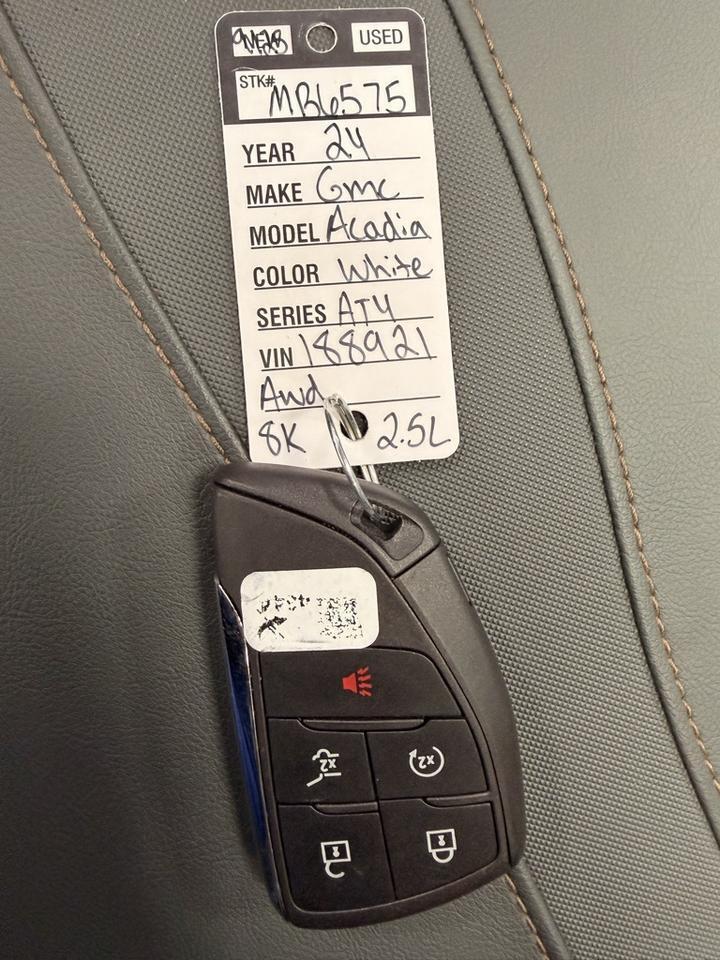 NEW USED
STK# MB6575
YEAR 24
MAKE Gmc
MODEL Acadia
COLOR White
SERIES AT4
VIN 188921
Awd
8K 2.5L
x2 x2